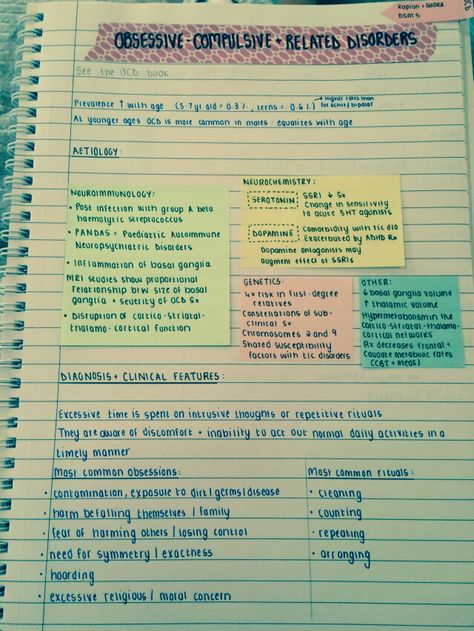 Kaplan + Sadock
DSM 5
OBSESSIVE-COMPULSIVE + RELATED DISORDERS
See the OCD book
Prevalence ↑ with age (5-7yr old = 0.3%, teens = 0.6%) → Higher rates than
for schiz / bipolar
At younger ages OCD is more common in males - equalizes with age
AETIOLOGY:
NEUROIMMUNOLOGY:
• Post infection with group A beta
haemolytic streptococcus
• PANDAS = Paediatric Autoimmune
Neuropsychiatric Disorders
• Inflammation of basal ganglia
MRI studies show proportional
relationship btw size of basal
ganglia + severity of OCD Sx
• Disruption of cortico-striatal-
thalamo-cortical function
NEUROCHEMISTRY:
SEROTONIN SSRI ↓ Sx
Change in sensitivity
to acute 5HT agonists
DOPAMINE Comorbidity with tic d/o
Exacerbated by ADHD Rx
Dopamine antagonists may
augment effect of SSRIs
GENETICS:
4x risk in first-degree
relatives
Constellations of sub-
clinical Sx
Chromosomes 2 and 9
Shared susceptibility
factors with tic disorders
OTHER:
↓ basal ganglia volume
↑ thalamic volume
Hypermetabolism in the
cortico-striatal-thalamo-
cortical networks
Rx decreases frontal +
caudate metabolic rates
(CBT + meds)
DIAGNOSIS + CLINICAL FEATURES:
Excessive time is spent on intrusive thoughts or repetitive rituals
They are aware of discomfort + inability to act out normal daily activities in a
timely manner
Most common obsessions:
• contamination, exposure to dirt / germs / disease
• harm befalling themselves / family
• fear of harming others / losing control
• need for symmetry / exactness
• hoarding
• excessive religious / moral concern
Most common rituals:
• cleaning
• counting
• repeating
• arranging